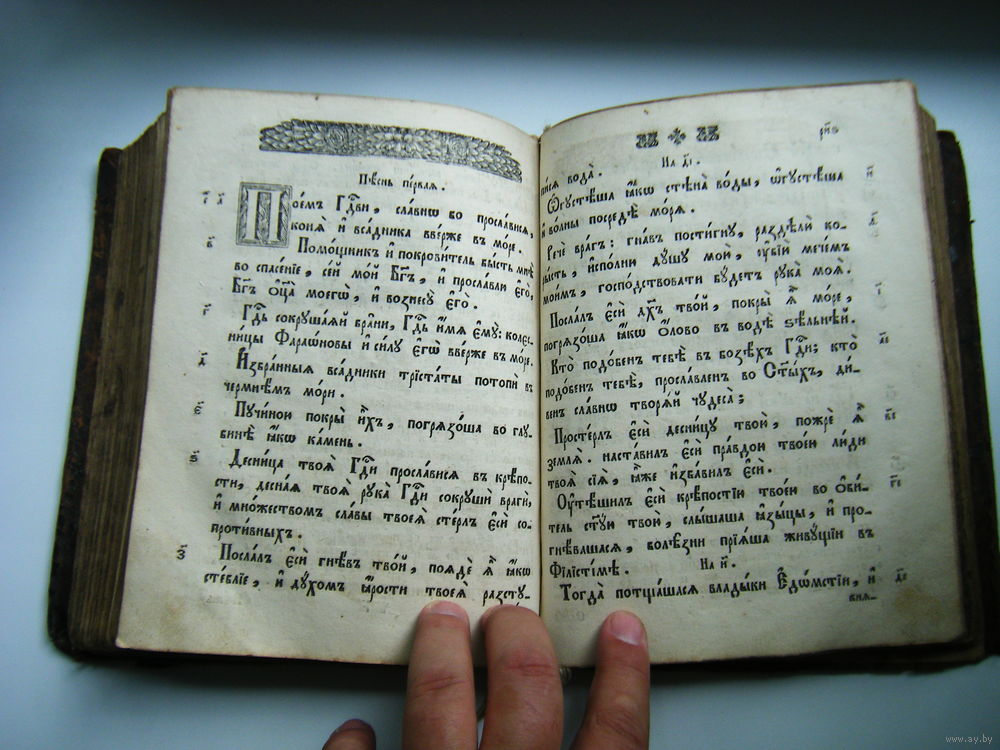 Пѣснь пе́рвая.
Пое́мъ Гд҇ви, сла́внѡ во просла́вися,
коня̀ и҆ вса́дника вве́рже въ мо́ре.
Помо́щникъ и҆ покрови́тель бы́сть мнѣ̀
во спасе́нїе, се́й мо́й Бг҃ъ, и҆ просла́влю є҆го̀,
Бг҃ъ ѻ҆ц҃а̀ моегѡ̀, и҆ вознесу̀ є҆го̀.
Гд҇ь сокруша́яй бра́ни, Гд҇ь и҆́мя є҆му̀: колес-
ни́цы Фараѡ́новы и҆ си́лу є҆гѡ̀ вве́рже въ мо́ре.
И҆збра́нныя вса́дники трїста́ты потопѝ въ
чермнѣ́мъ мо́ри.
Пучи́ною покры̀ и҆̀хъ, погрязо́ша во глу-
бинѣ̀ ꙗ҆́кѡ ка́мень.
Десни́ца твоя̀ Гд҇и просла́вися въ крѣ́по-
сти, десна́я твоя̀ рука̀ Гд҇и сокрушѝ врагѝ,
и҆ мно́жествомъ сла́вы твоея̀ сте́рлъ є҆сѝ со-
проти́вныхъ.
Посла́лъ є҆сѝ гнѣ́въ тво́й, поядѐ ѧ҆̀ ꙗ҆́кѡ
сте́блїе, и҆ ду́хомъ ꙗ҆́рости твоея̀ разсту-
На д҃і.
пи́ся вода̀.
Ѡ҆густѣ́ша ꙗ҆́кѡ стѣна̀ во́ды, ѡ҆густѣ́ша
и҆ во́лны посредѣ̀ мо́ря.
Речѐ вра́гъ: гна́въ пости́гну, раздѣлю̀ ко-
ры́сть, и҆спо́лню ду́шу мою̀, ᲂу҆бїю̀ мече́мъ
мои́мъ, госпо́дствовати бу́детъ рука̀ моя̀.
Посла́лъ є҆сѝ дх҃ъ тво́й, покры̀ ѧ҆̀ мо́ре,
погрязо́ша ꙗ҆́кѡ ѻ҆́лово въ водѣ̀ ѕѣ́льнѣй.
Кто̀ подо́бенъ тебѣ̀ въ бозѣ́хъ Гд҇и; кто̀
подо́бенъ тебѣ̀, просла́вленъ во Ст҃ы́хъ, ди-
венъ сла́внѡ творя́й чудеса̀;
Просте́рлъ є҆сѝ десни́цу твою̀, пожрѐ ѧ҆̀
земля̀. наста́вилъ є҆сѝ пра́вдою твое́ю лю́ди
твоя̀ сїя̀, ꙗ҆́же и҆зба́вилъ є҆сѝ.
Оу҆тѣ́шилъ є҆сѝ крѣ́постїю твое́ю во ѻ҆би́-
тель ст҃у́ю твою̀, слы́шаша ꙗ҆зы́цы, и҆ про-
гнѣ́вашася, болѣ́зни прїя́ша живу́щїи въ
Фїлїсті́мѣ.
На и҃.
Тогда̀ потща́шася влады́ки Є҆дѡ́мстїи, и҆
кня-
www.ay.by